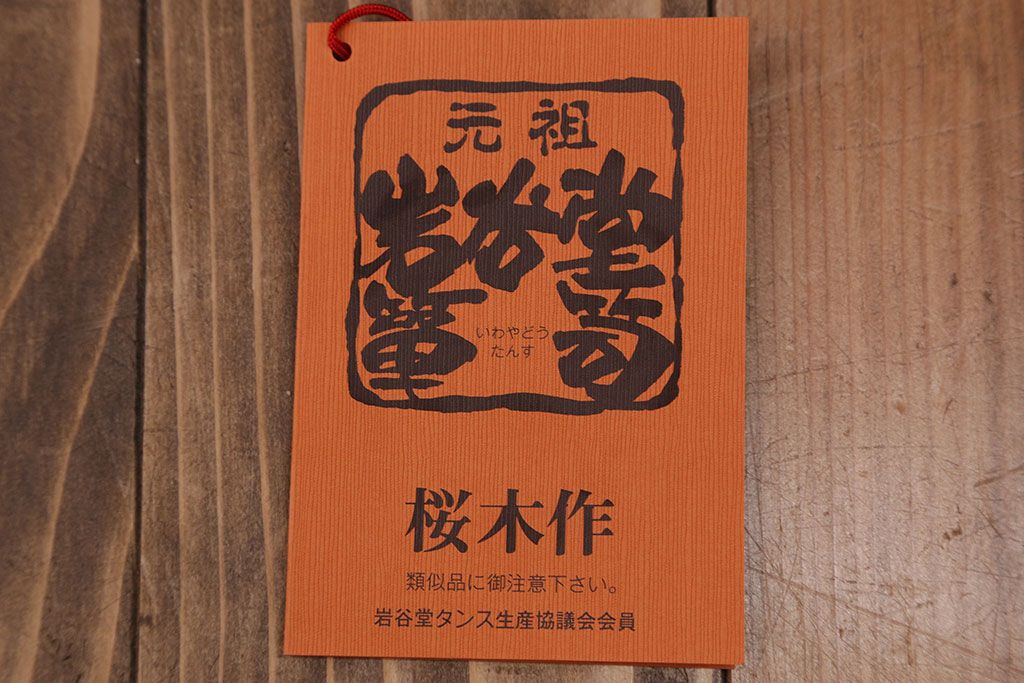 元祖
岩谷堂
箪笥
いわやどう
たんす
桜木作
類似品に御注意下さい。
岩谷堂タンス生産協議会会員